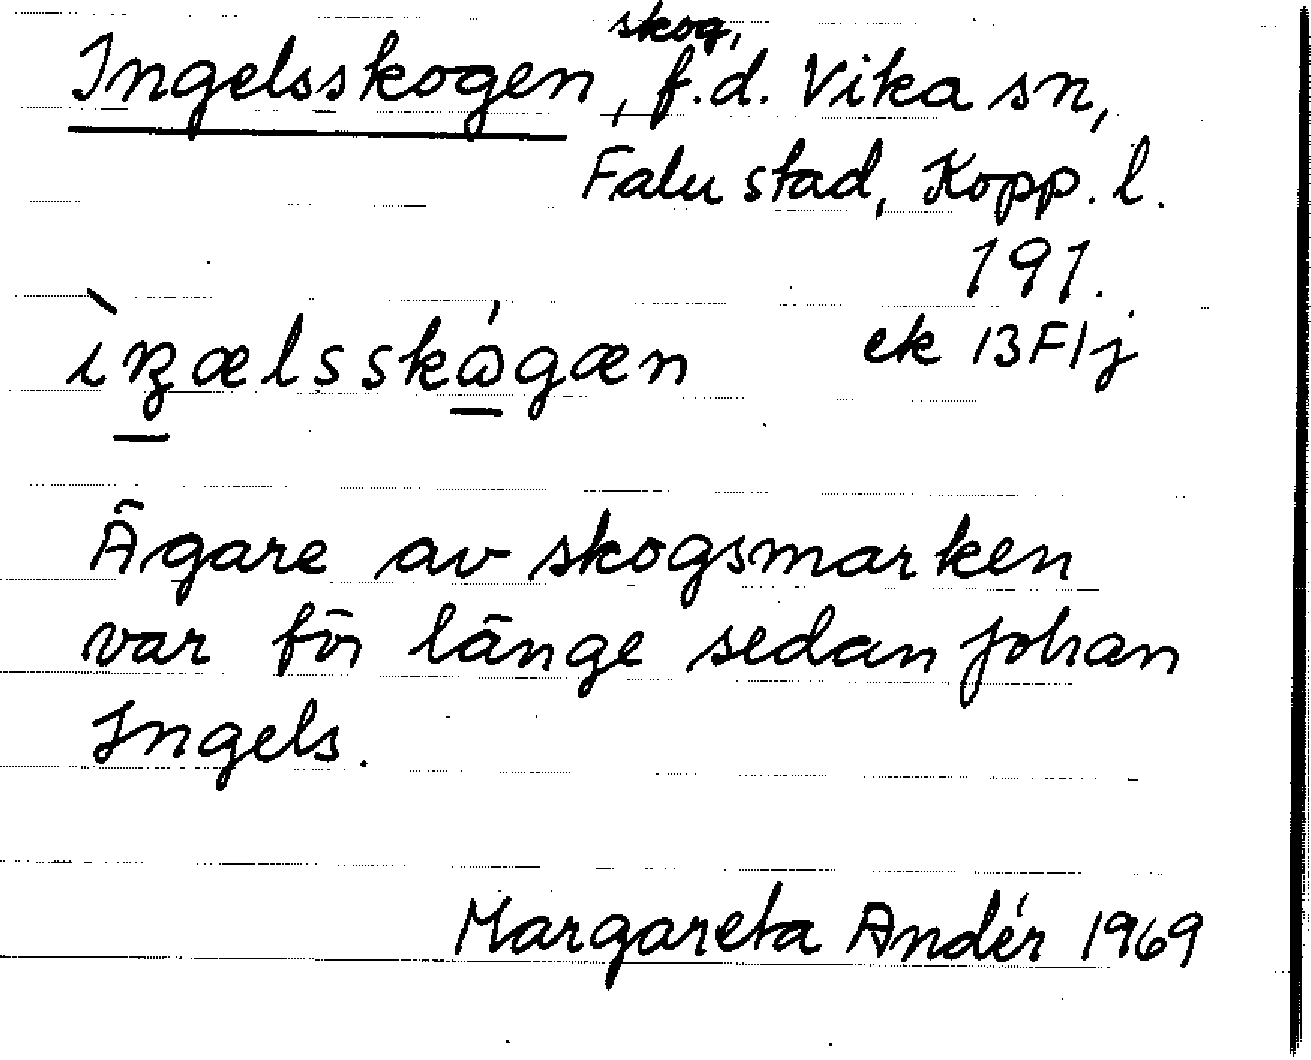 Ingelsskogen, skog, f.d. Vika sn,
Falu stad, Kopp. l.
191.
ek 13F1j
Ägare av skogsmarken
var för länge sedan Johan
Ingels.
Margareta Andér 1969